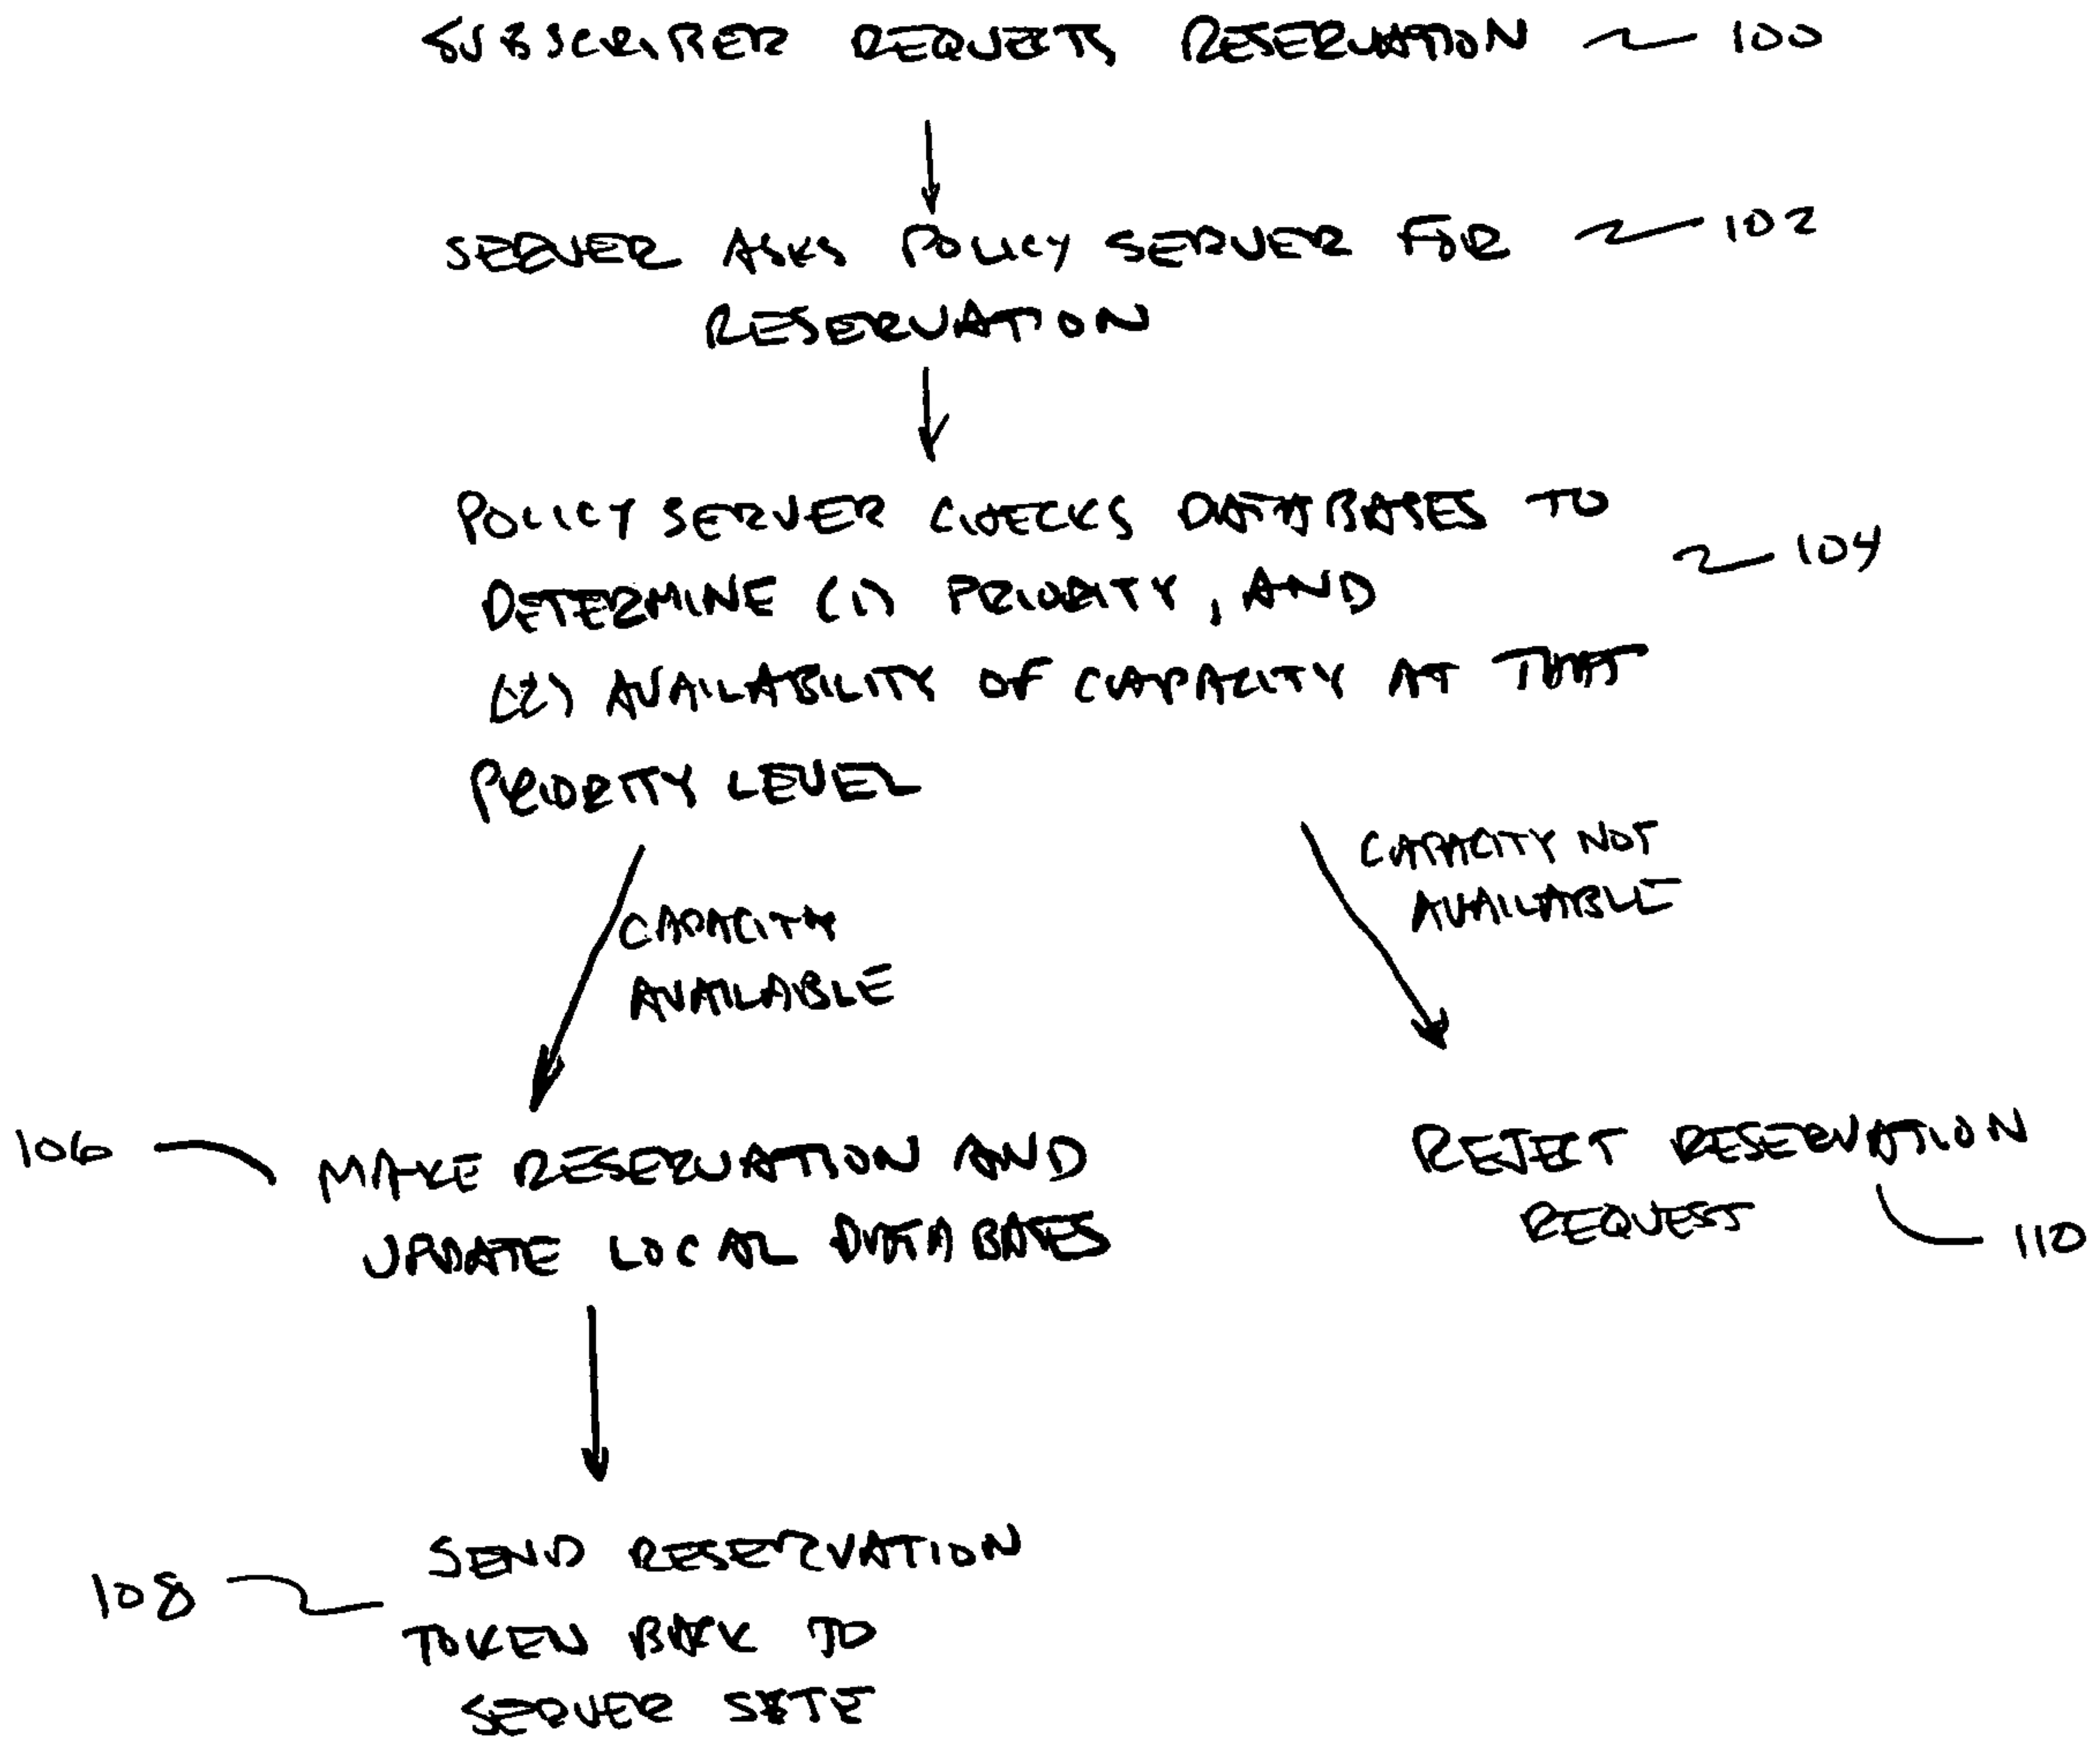 SUBSCRIBER REQUESTS RESERVATION 100
SERVER ASKS POLICY SERVER FOR 102
RESERVATION
POLICY SERVER CHECKS DATABASES TO
DETERMINE (1) PRIORITY, AND 104
(2) AVAILABILITY OF CAPACITY AT THAT
PRIORITY LEVEL
CAPACITY NOT
AVAILABLE
CAPACITY
AVAILABLE
106 MAKE RESERVATION AND
UPDATE LOCAL DATABASES
REJECT RESERVATION
REQUEST 110
SEND RESERVATION
108 TOKEN BACK TO
SERVER SITE